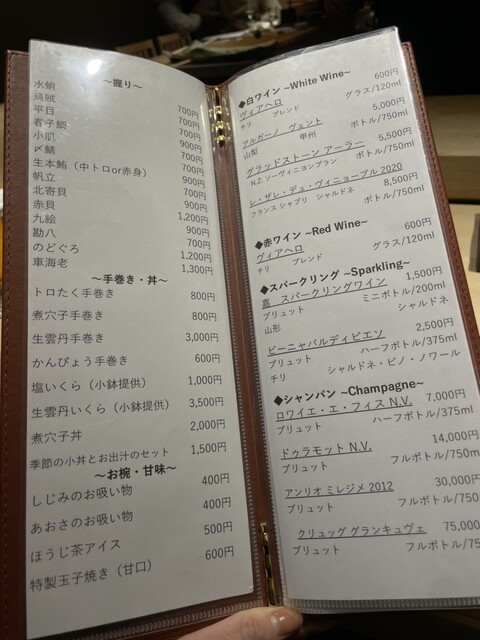 ～握り～
水蛸 700円
烏賊 700円
平目 700円
春子鯛 700円
小肌 700円
〆鯖 700円
生本鮪（中トロor赤身） 900円
帆立 700円
北寄貝 900円
赤貝 1,200円
九絵 900円
勘八 700円
のどぐろ 1,200円
車海老 1,300円
～手巻き・丼～
トロたく手巻き 800円
煮穴子手巻き 800円
生雲丹手巻き 3,000円
かんぴょう手巻き 600円
塩いくら（小鉢提供） 1,000円
生雲丹いくら（小鉢提供） 3,500円
煮穴子丼 2,000円
季節の小丼とお出汁のセット 1,500円
～お椀・甘味～
しじみのお吸い物 400円
あおさのお吸い物 400円
ほうじ茶アイス 500円
特製玉子焼き（甘口） 600円
◆白ワイン ~White Wine~
ヴィアヘロ 600円
チリ ブレンド グラス/120ml
アルガーノ ヴェント 5,000円
山梨 甲州 ボトル/750ml
グラッドストーン アーラー 5,500円
N.Z. ソーヴィニヨンブラン ボトル/750ml
レ・ザレ・デュ・ヴィニョーブル 2020 8,500円
フランス シャブリ シャルドネ ボトル/750ml
◆赤ワイン ~Red Wine~
ヴィアヘロ 600円
チリ ブレンド グラス/120ml
◆スパークリング ~Sparkling~
嘉 スパークリングワイン 1,500円
ブリュット ミニボトル/200ml
山形 シャルドネ
ビーニャバルディビエソ 2,500円
ブリュット ハーフボトル/375ml
チリ シャルドネ・ピノ・ノワール
◆シャンパン ~Champagne~
ロワイエ・エ・フィス N.V. 7,000円
ブリュット ハーフボトル/375ml
ドゥラモット N.V. 14,000円
ブリュット フルボトル/750m
アンリオ ミレジメ 2012 30,000円
ブリュット フルボトル/750
クリュッグ グランキュヴェ 75,000
ブリュット フルボトル/75